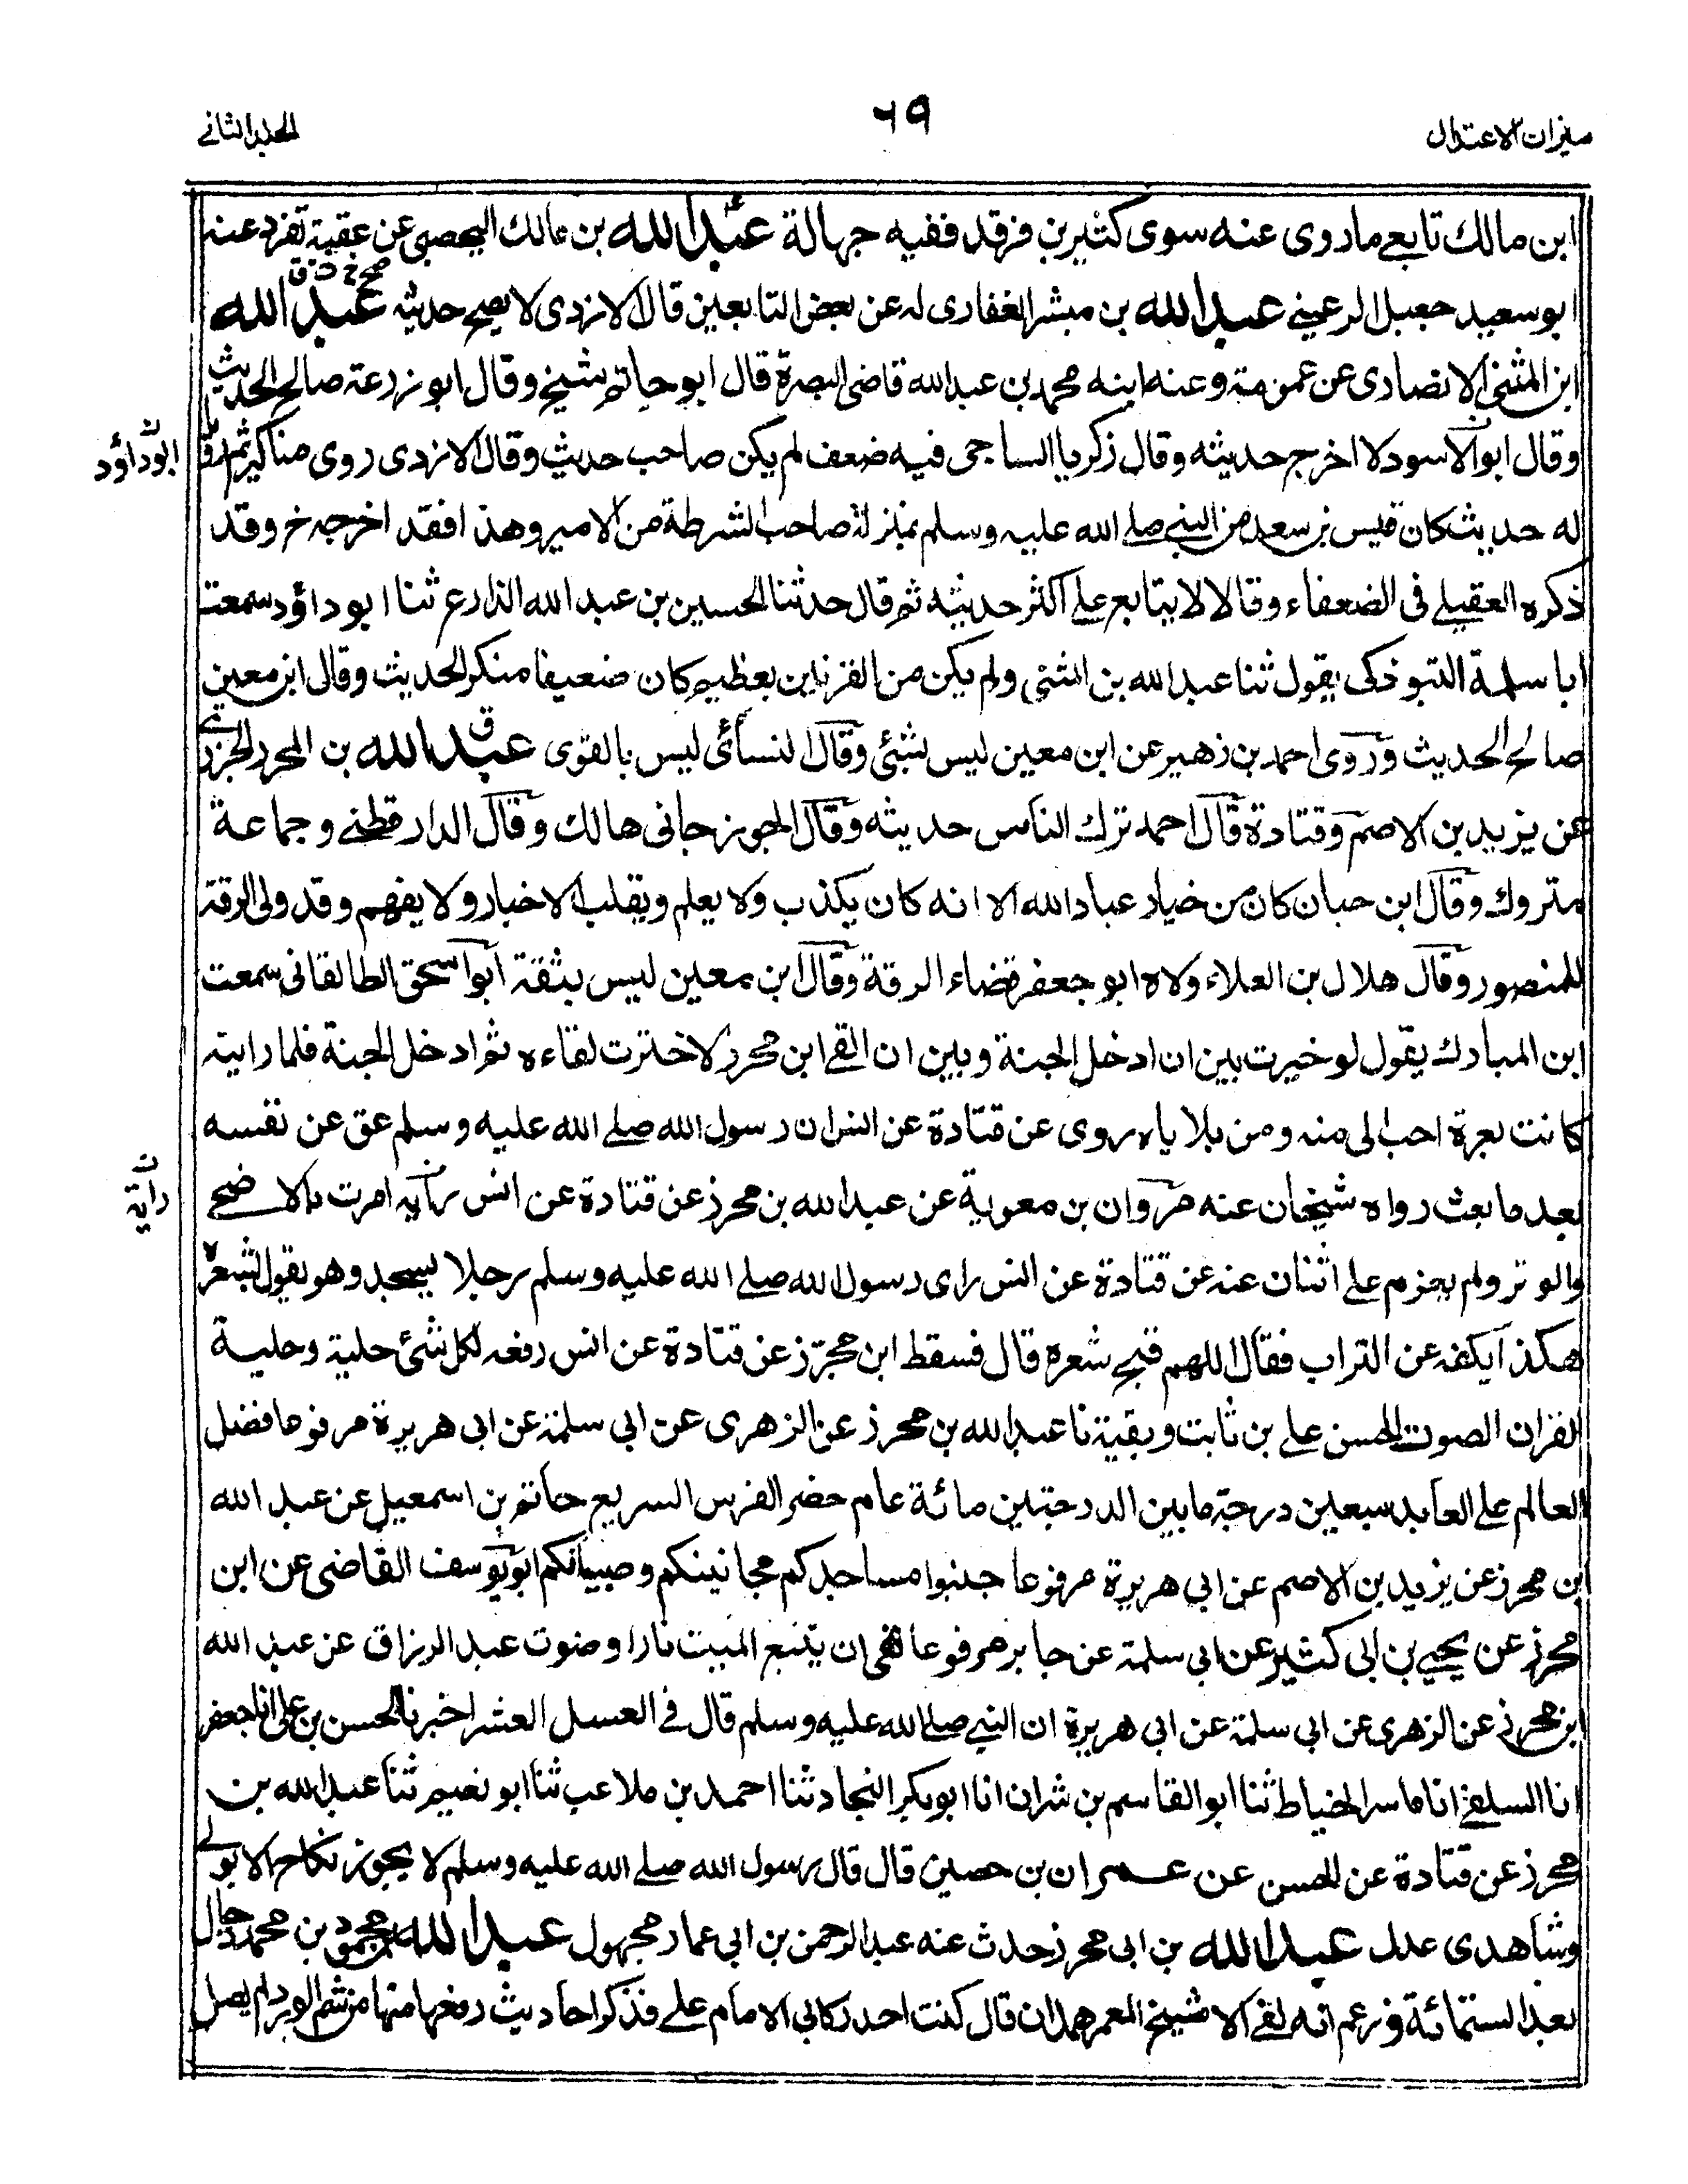 ميزان الاعتدال
٦٩
المجلد الثانى
ابن مالك تابعى ماروى عنه سوى كثير بن فرقد ففيه جهالة عبد الله بن مالك اليحصبى عن عقبة تفرد عنه
ابو سعيد جعيل الرعينى عبد الله بن مبشر الغفارى له عن بعض التابعين قال الازدى لا يصح حديثه صح خ ت ق عبد الله
ابن المثنى الانصارى عن عمومته وعنه ابنه محمد بن عبد الله قاضى البصرة قال ابو حاتم شيخ وقال ابو زرعة صالح الحديث
وقال ابو الاسود لا اخرج حديثه وقال زكريا الساجى فيه ضعف لم يكن صاحب حديث وقال الازدى روى مناكير ثم ساق
ابو داؤد
له حديث كان قيس بن سعد من النبى صلى الله عليه وسلم بمنزلة صاحب الشرطة من الامير وهذا فقد اخرجه خ وقد
ذكره العقيلى فى الضعفاء وقال لا يتابع على اكثر حديثه ثم قال حدثنا الحسين بن عبد الله الذارع ثنا ابو داؤد سمعت
ابا سلمة التبوذكى يقول ثنا عبد الله بن المثنى ولم يكن من القريتين بعظيم كان ضعيفا منكر الحديث وقال ابن معين
صالح الحديث وروى احمد بن زهير عن ابن معين ليس بشئى وقال النسائى ليس بالقوى ق عبد الله بن المحرر الجزرى
عن يزيد بن الاصم وقتادة قال احمد ترك الناس حديثه وقال الجوزجانى هالك وقال الدارقطنى وجماعة
متروك وقال ابن حبان كان من خيار عباد الله الا انه كان يكذب ولا يعلم ويقلب الاخبار ولا يفهم وقد ولى الرقة
للمنصور وقال هلال بن العلاء ولاه ابو جعفر قضاء الرقة وقال ابن معين ليس بثقة ابو اسحق الطالقانى سمعت
ابن المبارك يقول لو خيرت بين ان ادخل الجنة وبين ان القى ابن محرر لاخترت لقاءه ثم ادخل الجنة فلما رايته
كانت بعرة احب الى منه ومن بلاياه روى عن قتادة عن انس ان رسول الله صلى الله عليه وسلم عق عن نفسه
بعد ما بعث رواه شيخان عنه مروان بن معوية عن عبد الله بن محرز عن قتادة عن انس امرت بالاضحى
راية
والوتر ولم يعزم على اثنان عنه عن قتادة عن انس راى رسول الله صلى الله عليه وسلم رجلا يسجد وهو يقول بشعره
هكذا يكفه عن التراب فقال اللهم قبح شعره قال فسقط ابن محرز عن قتادة عن انس رفعه لكل شئ حلية وحلية
القران الصوت الحسن على بن ثابت وبقية نا عبد الله بن محرز عن الزهرى عن ابى سلمة عن ابى هريرة مرفوعا فضل
العالم على العابد سبعين درجة ما بين الدرجتين مائة عام حضر الفرس السريع حاتم بن اسمعيل عن عبد الله
ابن محرز عن يزيد بن الاصم عن ابى هريرة مرفوعا جنبوا مساجدكم مجانينكم وصبيانكم ابو يوسف القاضى عن ابن
محرز عن يحيى بن ابى كثير عن ابى سلمة عن جابر مرفوعا نهى ان يتبع الميت نارا وصوت عبد الرزاق عن عبد الله
ابن محرز عن الزهرى عن ابى سلمة عن ابى هريرة ان النبى صلى الله عليه وسلم قال فى العسل العشر اخبرنا الحسن بن على انا جعفر
انا السلفى انا ما سر الخياط ثنا ابو القاسم بن شران انا ابو بكر النجاد ثنا احمد بن ملاعب ثنا ابو نعيم ثنا عبد الله بن
محرز عن قتادة عن الحسن عن عمران بن حصين قال قال رسول الله صلى الله عليه وسلم لا يجوز نكاح الا بولى
وشاهدى عدل عبد الله بن ابى محرز حدث عنه عبد الرحمن بن ابى عمار مجهول عبد الله بن محمود بن محمد
بعد الستمائة فزعم انه لقى الاشيخ المعمر همدان قال كنت احد ركابى الامام على فذكر احاديث رفعها منها من شم الورد لم يصل